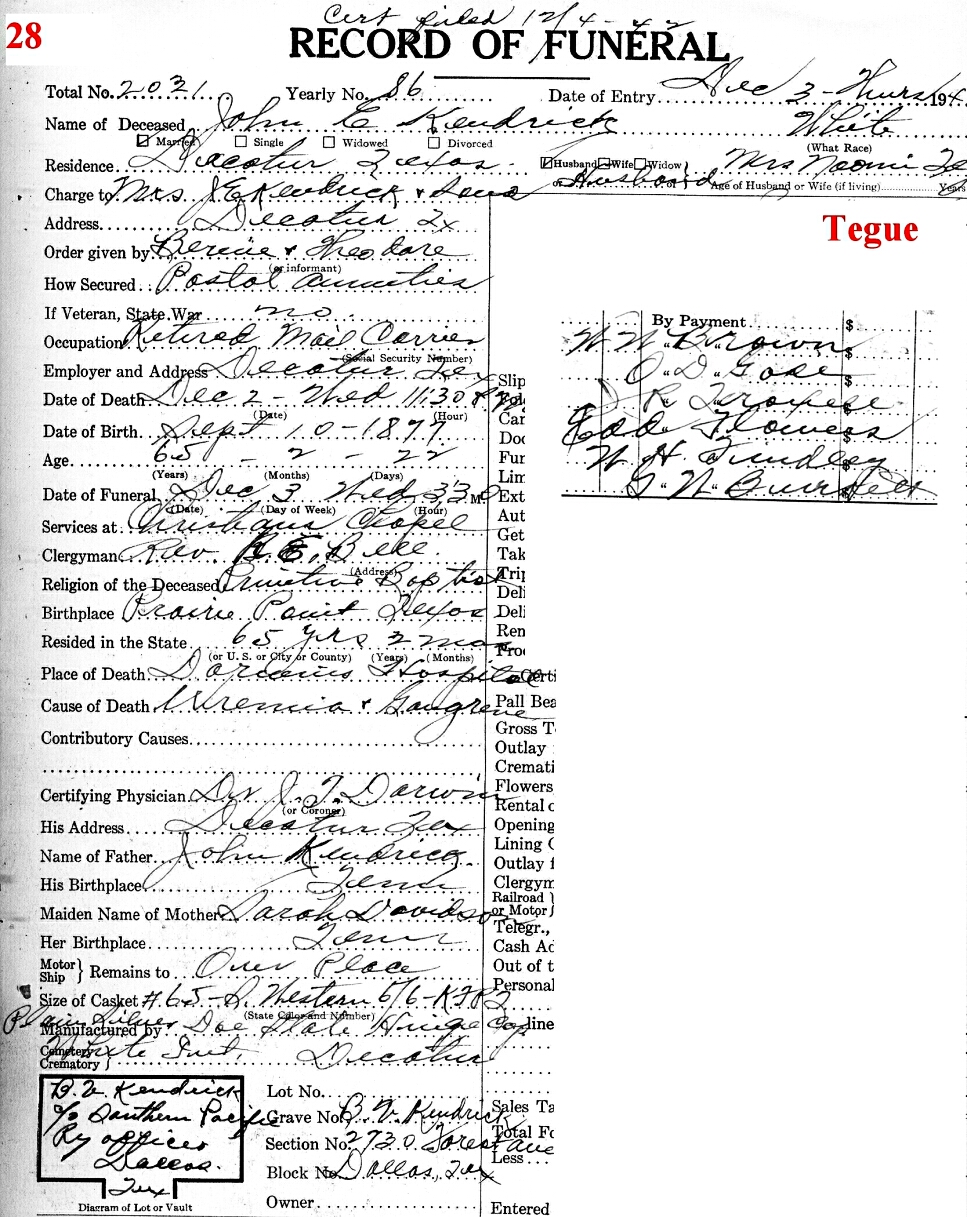 28
Cert filed 12/4-42
RECORD OF FUNERAL
Total No. 2031 Yearly No. 86 Date of Entry Dec 3 - Thurs 194
Name of Deceased John E Kendrick White
Married Single Widowed Divorced (What Race)
Residence Decatur Texas. Husband Wife Widow Mrs Naomi Te
or Husband Age of Husband or Wife (if living) Years
Charge to Mrs. J E Kendrick & Sons
Address Decatur Tx
Tegue
Order given by Bernie & Theodore
(or informant)
How Secured Postal Annuities
If Veteran, State War no.
Occupation Retired Mail Carrier
(Social Security Number)
Employer and Address Decatur Tex
Date of Death Dec 2 - Wed 11:30 P.M.
(Date) (Hour)
Date of Birth Sept 10-1877
Age 65 - 2 - 22
(Years) (Months) (Days)
Date of Funeral Dec 3 Wed 3:30 M
(Date) (Day of Week) (Hour)
Services at Christians Chapel
Clergyman Rev. R. E. Bell.
(Address)
Religion of the Deceased Primitive Baptist
Birthplace Prairie Point Texas
Resided in the State 65 yrs 2 mos
(or U. S. or City or County) (Years) (Months)
Place of Death Hospital
Cause of Death Uremia & Gangrene
Contributory Causes
Certifying Physician Dr J. T. Darwin
(or Coroner)
His Address Decatur Tex
Name of Father John Kendrick
His Birthplace Tenn
Maiden Name of Mother Sarah Davidson
Her Birthplace Tenn
Motor
Ship } Remains to Our Place
Size of Casket #65-S. Western 6/6-K
(State Color and Number)
Plain Silver Doe State Hinge Cap
Manufactured by
White Int. Decatur
Cemetery
Crematory }
B. V. Kendrick
c/o Southern Pacific
Ry offices
Dallas.
Tex
Diagram of Lot or Vault
Lot No.
Grave No. B. V. Kendrick
Section No. 2730 Forest ave
Block No. Dallas, Tex
Owner
By Payment $
W "W" Brown $
O "D" Gose $
R $
Edd Flowers $
W H Tundley $
G "N" Burdett
Slip
Car
Doc
Fur
Lim
Ext
Aut
Get
Tak
Trip
Deli
Deli
Ren
Proc
Certi
Pall Bea
Gross T
Outlay
Cremati
Flowers
Rental o
Opening
Lining C
Outlay f
Clergym
Railroad }
or Motor }
Telegr.,
Cash Ad
Out of t
Personal
line
Sales Ta
Total Fo
Less
Entered